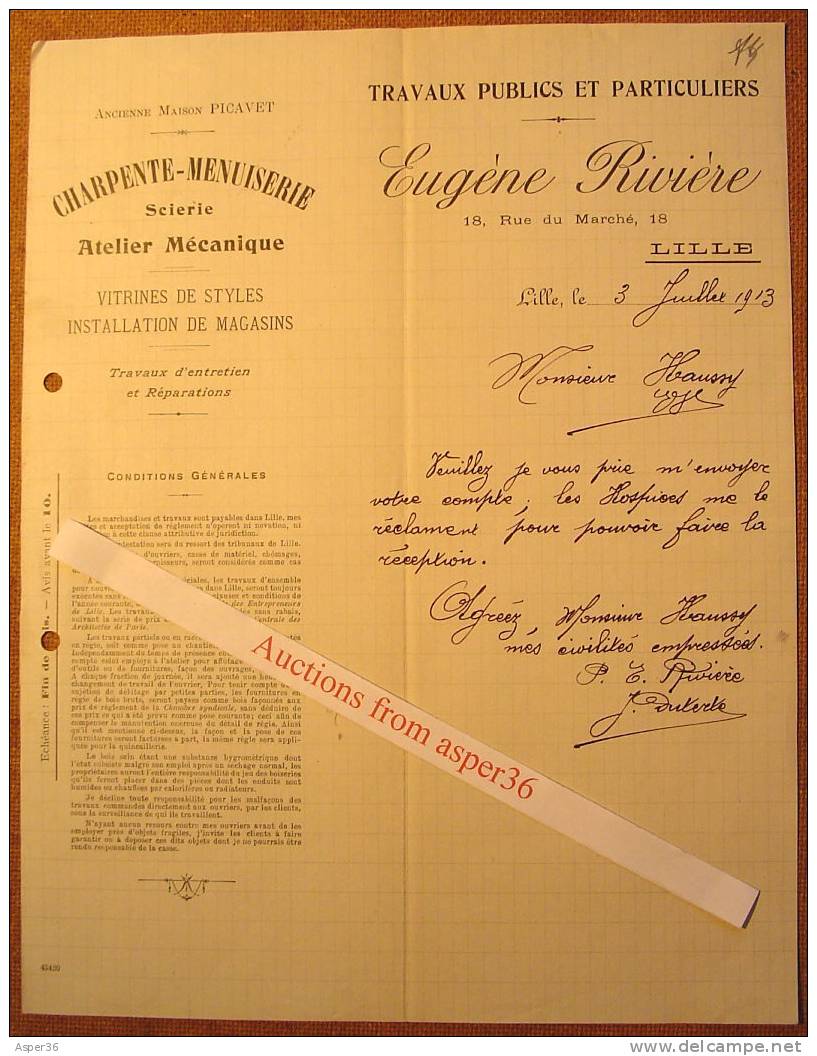 ANCIENNE MAISON PICAVET
CHARPENTE-MENUISERIE
Scierie
Atelier Mécanique
VITRINES DE STYLES
INSTALLATION DE MAGASINS
Travaux d'entretien
et Réparations
CONDITIONS GÉNÉRALES
Les marchandises et travaux sont payables dans Lille, mes
et acceptation de règlement n'opèrent ni novation, ni
à cette clause attributive de juridiction.
sera du ressort des tribunaux de Lille.
d'ouvriers, casse de matériel, chômages,
seront considérés comme cas
les travaux d'ensemble
dans Lille, seront toujours
et conditions de
des Entrepreneurs
de Lille. Les travaux sans rabais,
suivant la série de prix Centrale des
Architectes de Paris.
Les travaux partiels ou en
en régie, soit comme pose au
Indépendamment du temps de présence
compte celui employé à l'atelier pour affûtage
d'outils ou de fournitures, façon des ouvrages,
A chaque fraction de journée, il sera ajouté une
changement de travail de l'ouvrier. Pour tenir compte
sujétion de débitage par petites parties, les fournitures en
régie de bois bruts, seront payées comme bois façonnés aux
prix de règlement de la Chambre syndicale, sans déduire de
ces prix ce qui a été prévu comme pose courante; ceci afin de
compenser le manutention onéreuse du détail de régie. Ainsi
qu'il est mentionné ci-dessus, la façon et la pose de ces
fournitures seront facturées à part, la même règle sera appli-
quée pour la quincaillerie.
Le bois sein étant une substance hygrométrique dont
l'état subsiste malgré son emploi après un séchage normal, les
propriétaires auront l'entière responsabilité du jeu des boiseries
qu'ils feront placer dans des pièces dont les enduits sont
humides ou chauffées par calorifères ou radiateurs.
Je décline toute responsabilité pour les malfaçons des
travaux commandés directement aux ouvriers, par les clients,
sous la surveillance de qui ils travaillent.
N'ayant aucun recours contre mes ouvriers avant de les
employer près d'objets fragiles, j'invite les clients à faire
garantir ou à déposer ces dits objets dont je ne pourrais être
rendu responsable de la casse.
Echéance : Fin de — Avis avant le 10.
45420
TRAVAUX PUBLICS ET PARTICULIERS
Eugène Rivière
18, Rue du Marché, 18
LILLE
Lille, le 3 Juillet 1913
Monsieur Haussy
Veuillez je vous prie m'envoyer
votre compte; les Hospices me le
réclament pour pouvoir faire la
réception.
Agréez Monsieur Haussy
mes civilités empressées.
P. E. Rivière
Auctions from asper36
Asper36
www.delcampe.net